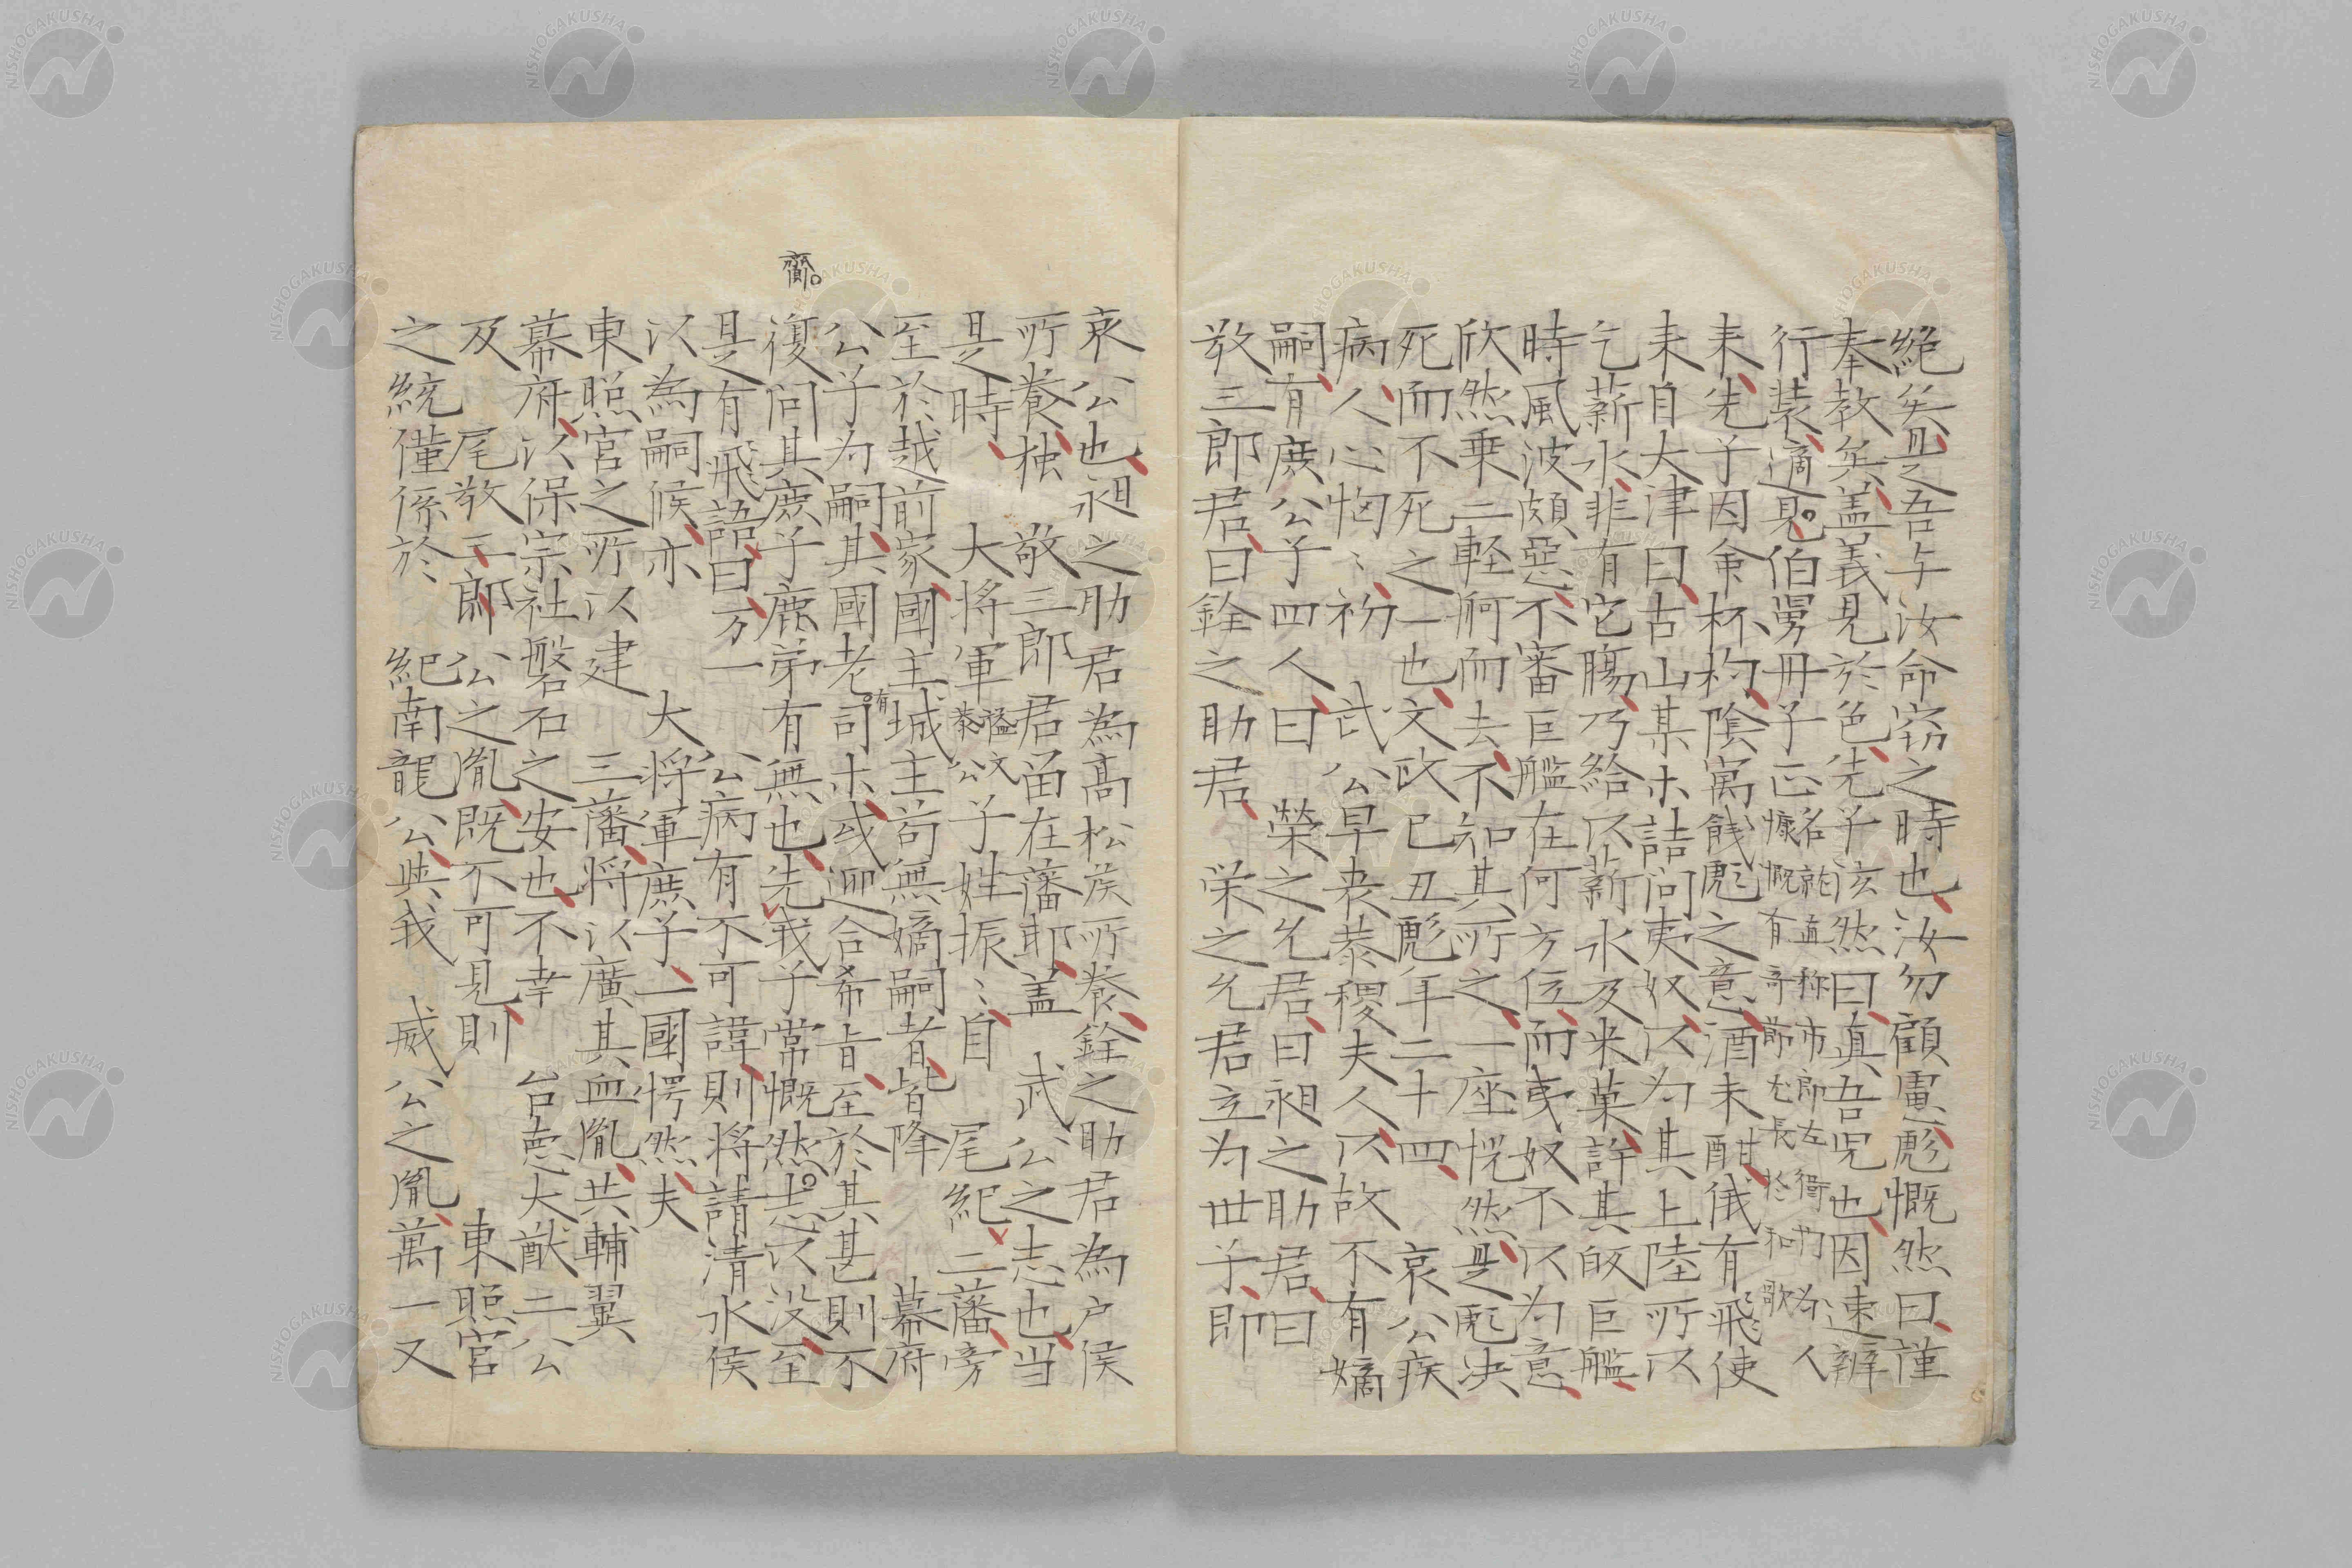 絶矣是吾与汝命窮之時也汝勿顧慮彪慨然曰謹
奉教矣盖義見於色先子泫然曰真吾児也因速辨
行装適見伯舅毌子正名就自直称市郎左衛門为人慷慨有奇節尤長於和歌
来先子因命杯杓陰寓餞彪之意酒未酣俄有飛使
来自大津曰古山某木詰问夷奴以为其上陸所以
乞薪水非有它膓乃給以薪水及米菓許其皈巨艦
時風波頗惡不審巨艦在何方位而夷奴不以为意
欣然乗二軽舸而去不知其所之一座恍然是彪决
死而不死之一也文政己丑彪年二十四 哀公疾
病人心恟〻初 武公早丧恭稷夫人以故不有嫡
嗣有庶公子四人曰 榮之允君曰昶之助君曰
敬三郎君曰銓之助君 栄之允君立为世子即
哀公也昶之助君為高松侯所養銓之助君為户侯
所養独 敬三郎君畄在藩邸盖 武公之志也当
是時 大将軍文恭公謚子姓振〻自 尾紀二藩旁
至於越前家國主城主苟無嫡嗣者皆降 幕府
公子为嗣其國老有司木或迎合希旨至於其甚則不
復问其庶子庶弟有無也先我子常慨然志以没至
齎
是有飛語曰万一 公病有不可諱則将請清水侯
以為嗣候亦 大将軍庶子一國愕然夫
東照宮之所以建 三藩将以廣其血胤共輔翼
幕府以保宗社磐石之安也不幸 台悳大猷二公
及 尾敬二郎公之胤既不可見則 東照宮
之統僅係於 紀南龍公與我 威公之胤萬一又
NISHOGAKUSHA